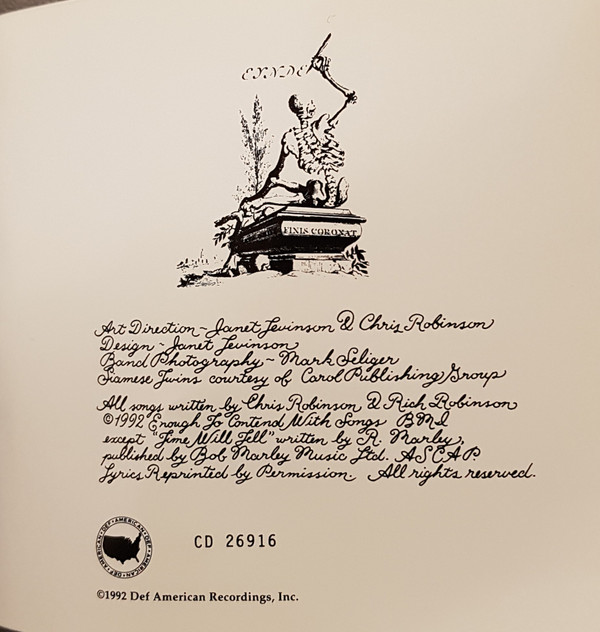 ENNDE
FINIS CORONAT
Art Direction ~ Janet Levinson & Chris Robinson
Design ~ Janet Levinson
Band Photography ~ Mark Seliger
Siamese Twins courtesy of Carol Publishing Group
All songs written by Chris Robinson & Rich Robinson
©1992 Enough To Contend With Songs BMI
except "Time Will Tell" written by R. Marley,
published by Bob Marley Music Ltd. ASCAP
Lyrics Reprinted by Permission All rights reserved.
DEF • AMERICAN • DEF • AMERICAN • DEF • AMERICAN •
CD 26916
©1992 Def American Recordings, Inc.